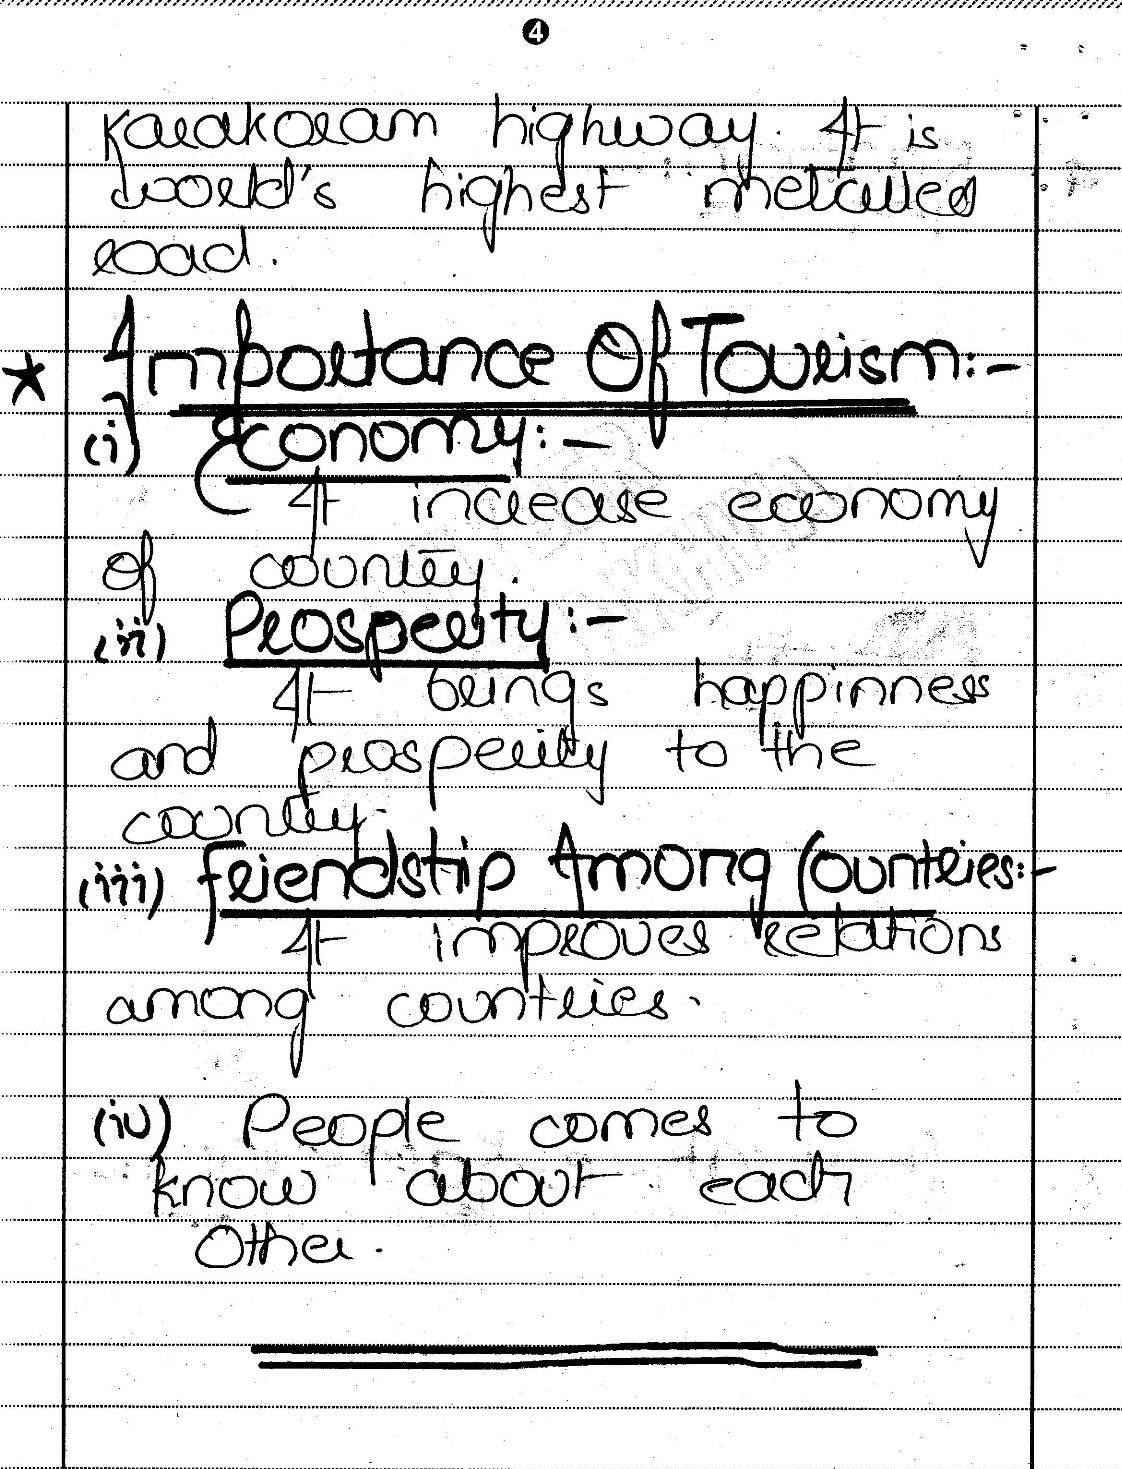 4
Karakoram highway. It is
world's highest metalled
road.
* Importance Of Tourism:-
(i) Economy:-
It increase economy
of country.
(ii) Prosperity:-
It brings happinness
and prosperity to the
country.
(iii) Friendship Among Countries:-
It improves relations
among countries.
(iv) People comes to
know about each
Other.